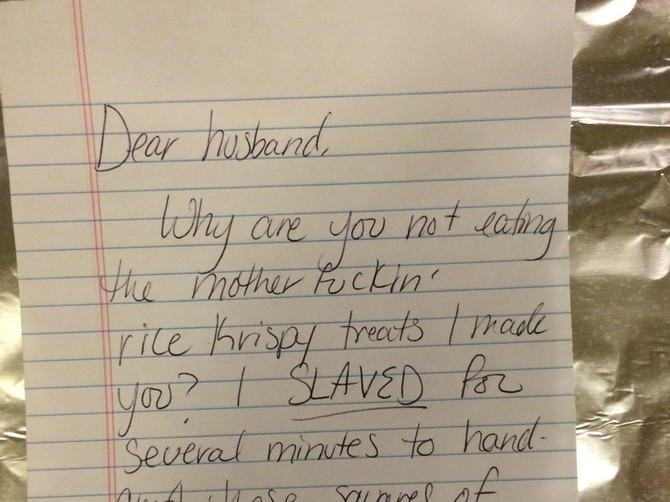 Dear husband,
Why are you not eating
the mother fuckin'
rice krispy treats I made
you? I SLAVED for
several minutes to hand-
these squares of